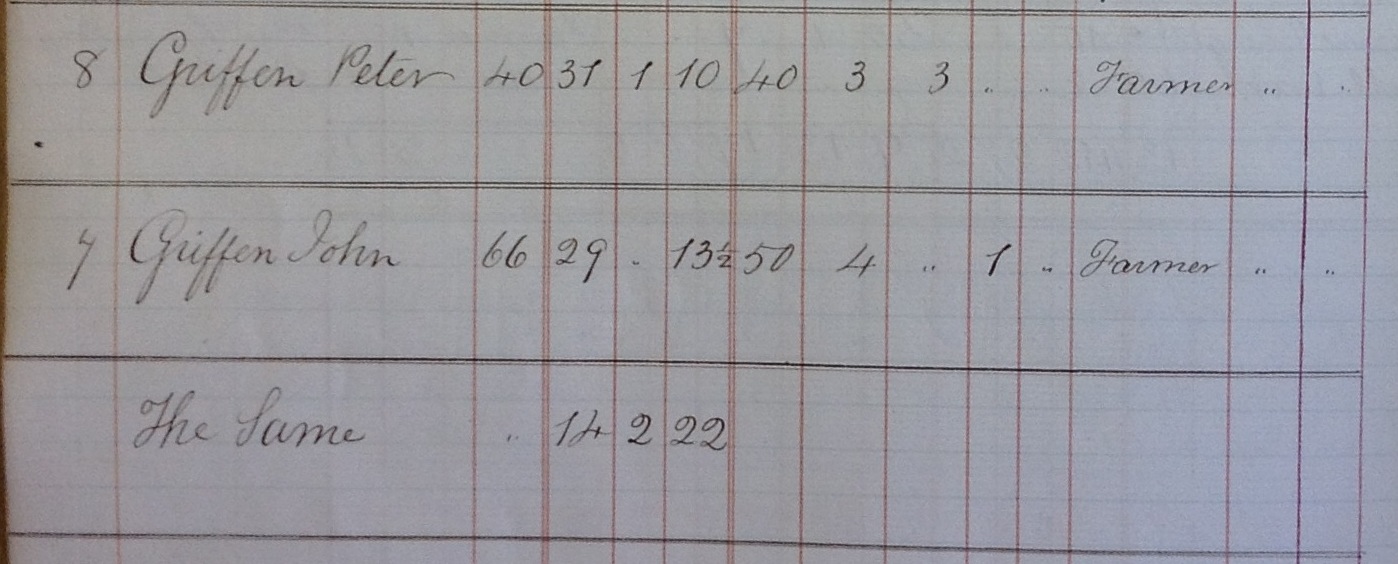 8 Griffen Peter 40 31 1 10 40 3 3 " " Farmer " "
7 Griffen John 66 29 " 13½ 50 4 " 1 " Farmer " "
The Same " 14 2 22